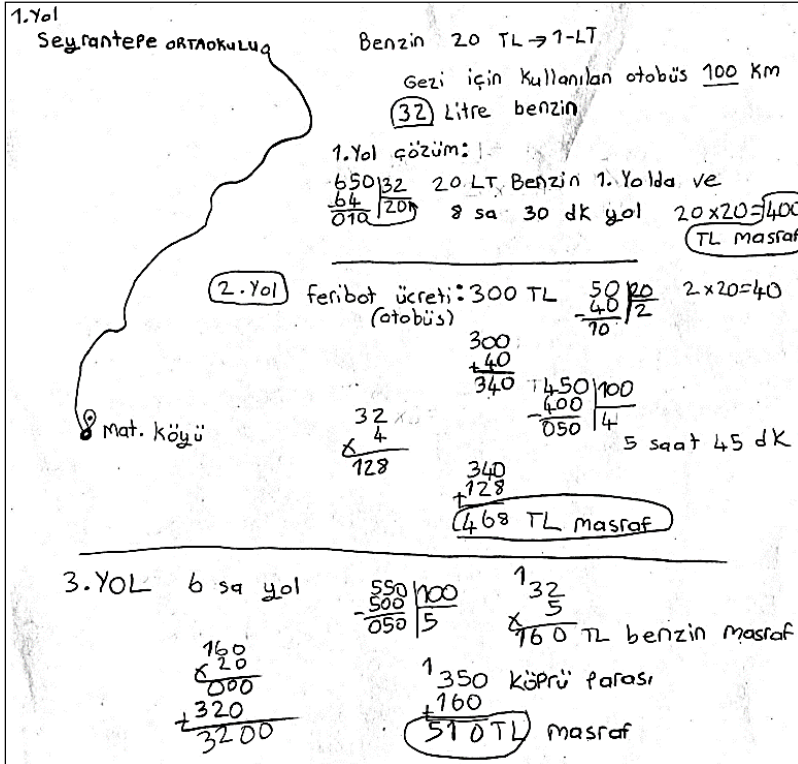 1.Yol
Seyrantepe ORTAOKULU
Benzin 20 TL → 1-LT
Gezi için kullanılan otobüs 100 Km
32 Litre benzin
1.Yol çözüm:
650 | 32
64 | 20
010
20 LT Benzin 1. Yolda ve
8 sa 30 dk yol 20x20=400
TL masraf
2.Yol feribot ücreti: 300 TL
(otobüs)
50 | 20
-40 | 2
10
2x20=40
300
+40
340
450 | 100
-400 | 4
050
5 saat 45 dk
Mat. köyü
32
x 4
128
340
+128
468 TL masraf
3.YOL 6 sa yol
550 | 100
-500 | 5
050
1
32
x 5
160 TL benzin masraf
160
x 20
000
+320
3200
1
350 köprü parası
+160
510 TL masraf